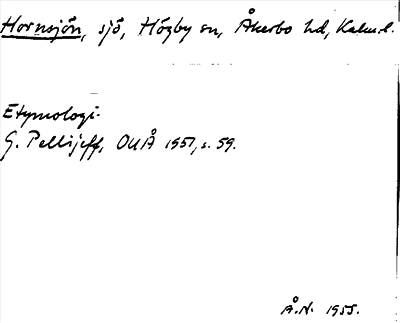 Hornsjön, sjö, Högby sn, Åkerbo hd, Kalm.l.
Etymologi.
G. Pellijeff, OUÅ 1957, s. 59.
Å.N. 1955.